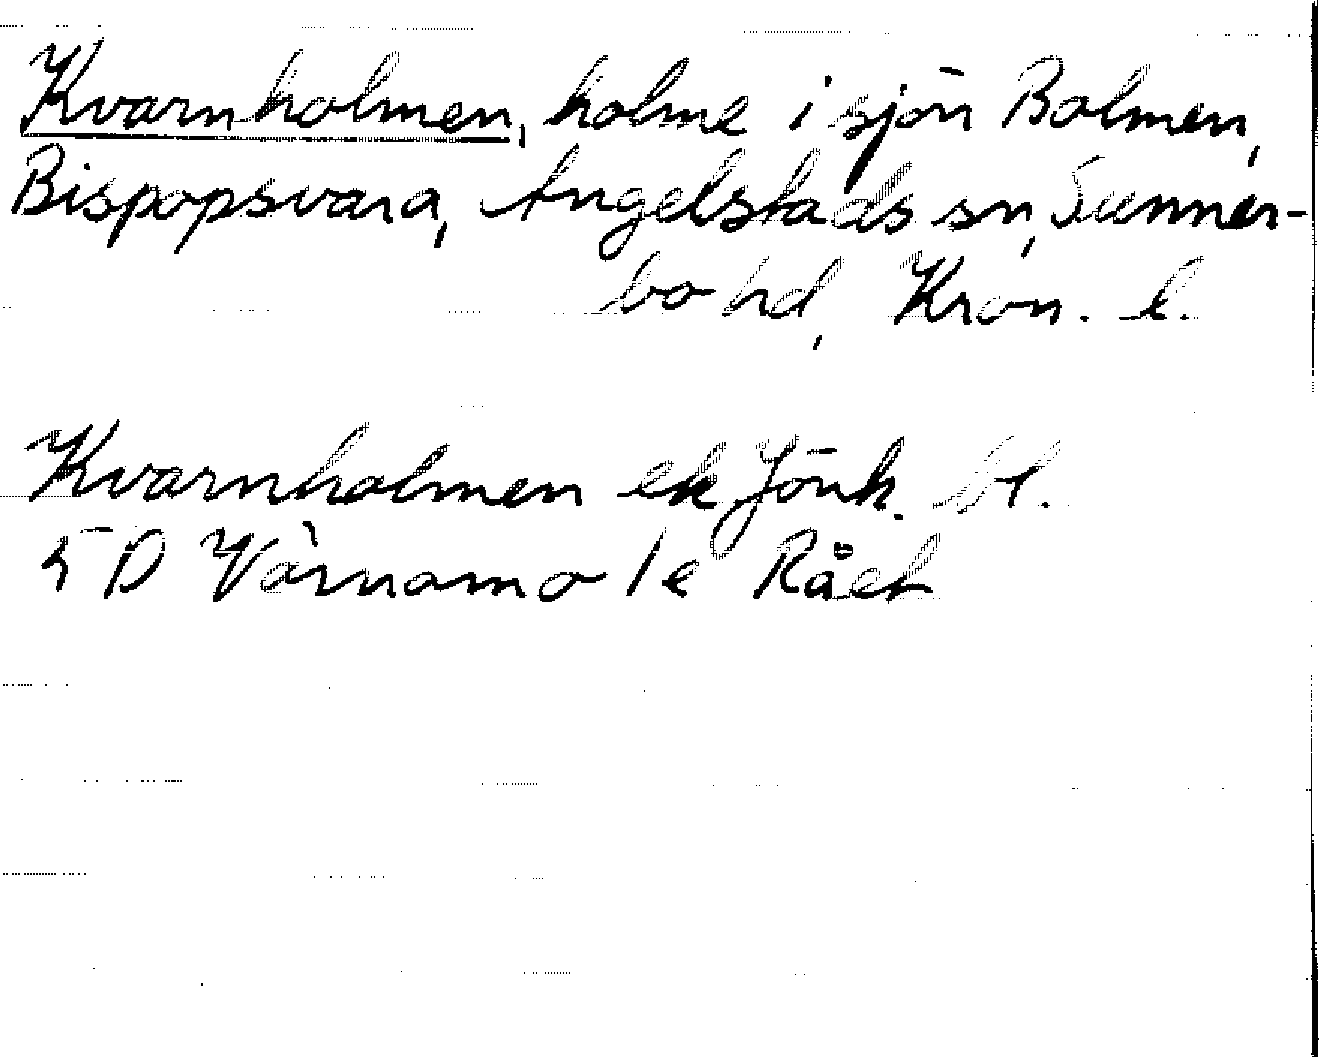 Kvarnholmen, holme i sjön Bolmen,
Bispopsvara, Angelstads sn, Sunner-
bo hd, Kron. l.
Kvarnholmen ek Jönk. bl.
5 D Värnamo 1 e Rået